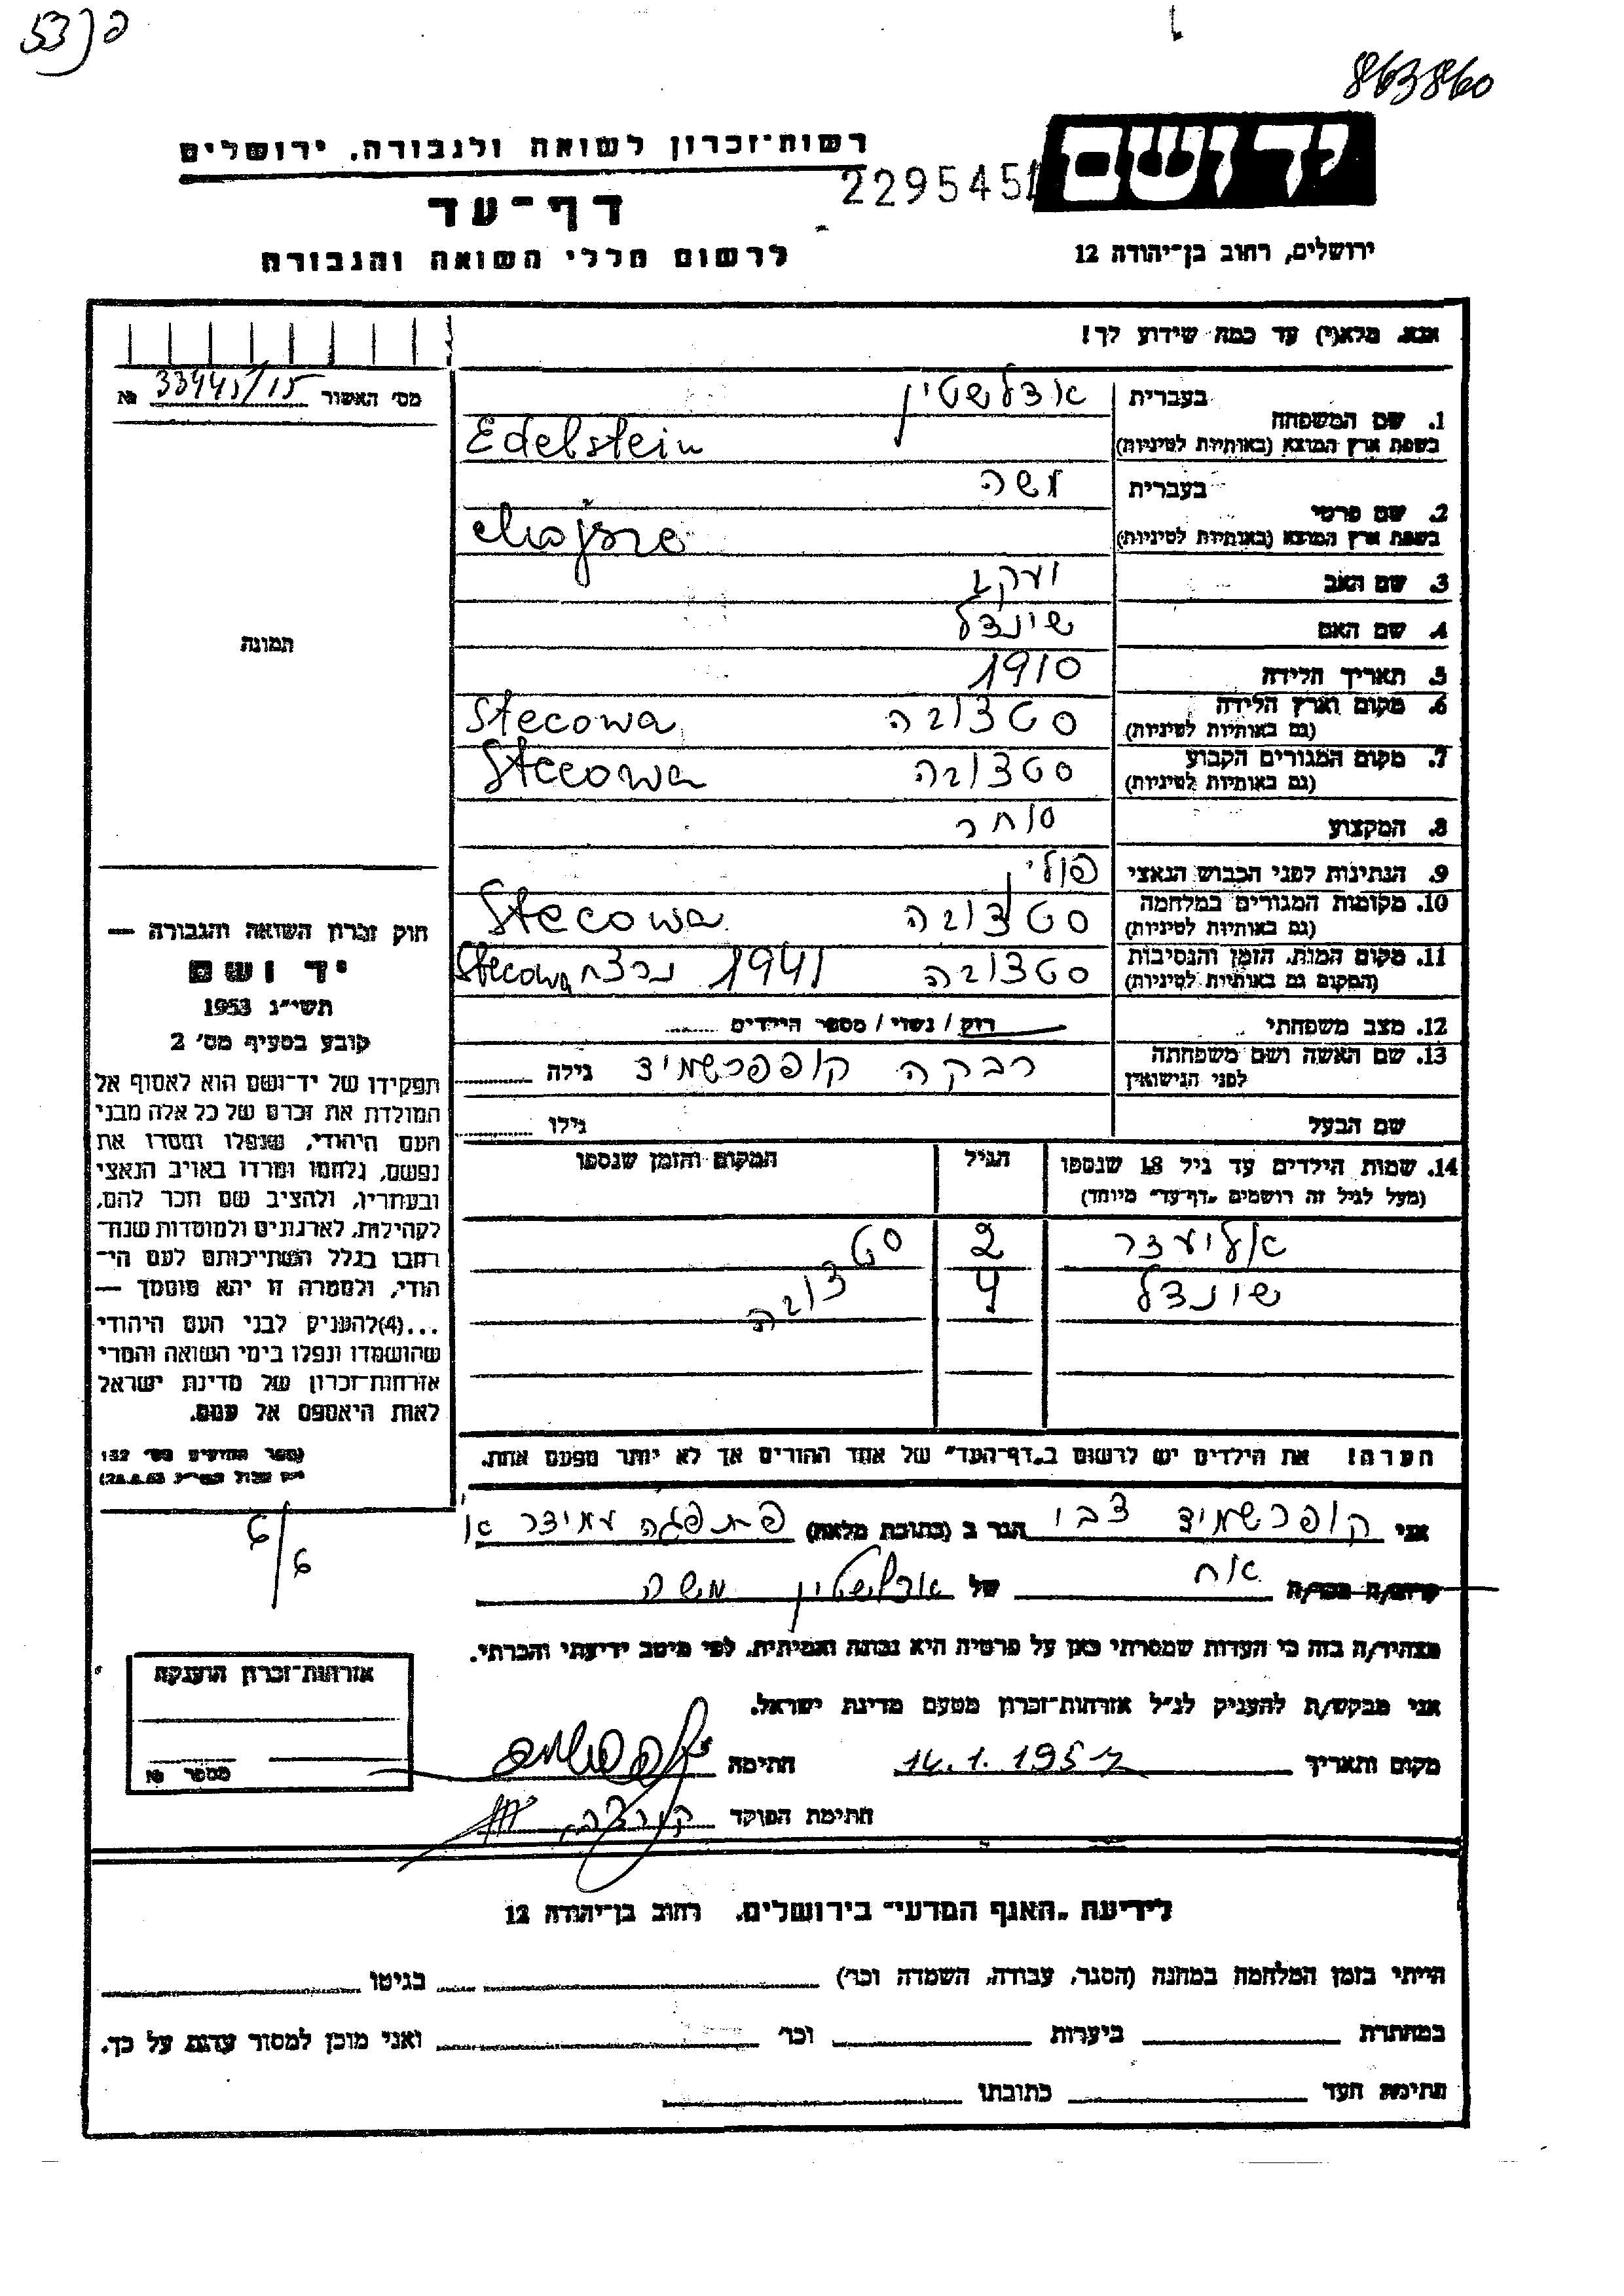 53 פק
863860
יד ושם
רשות־זכרון לשואה ולגבורה. ירושלים
2295451
דף־עד
ירושלים, רחוב בן־יהודה 12
לרשום חללי השואה והגבורה
אנא, מלא(י) עד כמה שידוע לך!
מס׳ האשור № 33441/15
1. שם המשפחה
בעברית אדלשטיין
בשפת ארץ המוצא (באותיות לטיניות) Edelstein
2. שם פרטי
בעברית משה
בשפת ארץ המוצא (באותיות לטיניות) Mojsze
3. שם האב יעקב
4. שם האם שיינדל
5. תאריך הלידה 1910
6. מקום וארץ הלידה סטצובה Stecowa
(גם באותיות לטיניות)
7. מקום המגורים הקבוע סטצובה Stecowa
(גם באותיות לטיניות)
8. המקצוע סוחר
9. הנתינות לפני הכבוש הנאצי פולני
10. מקומות המגורים במלחמה סטצובה Stecowa
(גם באותיות לטיניות)
11. מקום המות, הזמן והנסיבות סטצובה 1941 נרצח Stecowa
(המקום גם באותיות לטיניות)
12. מצב משפחתי רוק / נשוי / מספר הילדים
13. שם האשה ושם משפחתה רבקה קופפרשמיד גילה
לפני הנישואין
שם הבעל גילו
14. שמות הילדים עד גיל 18 שנספו הגיל המקום והזמן שנספו
(מעל לגיל זה רושמים "דף־עד" מיוחד)
אליעזר 2 סטצובה
שיינדל 4
הערה! את הילדים יש לרשום ב"דף־העד" של אחד ההורים אך לא יותר מפעם אחת.
תמונה
חוק זכרון השואה והגבורה —
יד ושם
תשי״ג 1953
קובע בסעיף מס׳ 2
תפקידו של יד־ושם הוא לאסוף אל
המולדת את זכרם של כל אלה מבני
העם היהודי, שנפלו ומסרו את
נפשם, נלחמו ומרדו באויב הנאצי
ובעוזריו, ולהציב שם וזכר להם,
לקהילות, לארגונים ולמוסדות שנח־
רבו בגלל השתייכותם לעם הי־
הודי, ולמטרה זו יהא מוסמך —
...(4) להעניק לבני העם היהודי
שהושמדו ונפלו בימי השואה והמרי
אזרחות־זכרון של מדינת ישראל
לאות היאספם אל עמם.
(ספר החוקים מס׳ 132
6/6
אני קופרשמיד צבי הגר ב (כתובת מלאה) פתח
קרוב/ה מכר/ה אח של אדלשטיין משה
מצהיר/ה בזה כי העדות שמסרתי כאן על פרטיה היא נכונה ואמיתית, לפי מיטב ידיעתי והכרתי.
אני מבקש/ת להעניק לנ״ל אזרחות־זכרון מטעם מדינת ישראל.
מקום ותאריך 14.1.1957 חתימה
חתימת הפוקד
אזרחות־זכרון הוענקה
מספר №
לידיעת "האגף המדעי" בירושלים, רחוב בן־יהודה 12
הייתי בזמן המלחמה במחנה (הסגר, עבודה, השמדה וכו׳) בגיטו
במחתרת ביערות וכו׳ ואני מוכן למסור עדות על כך.
חתימת העד כתובתו